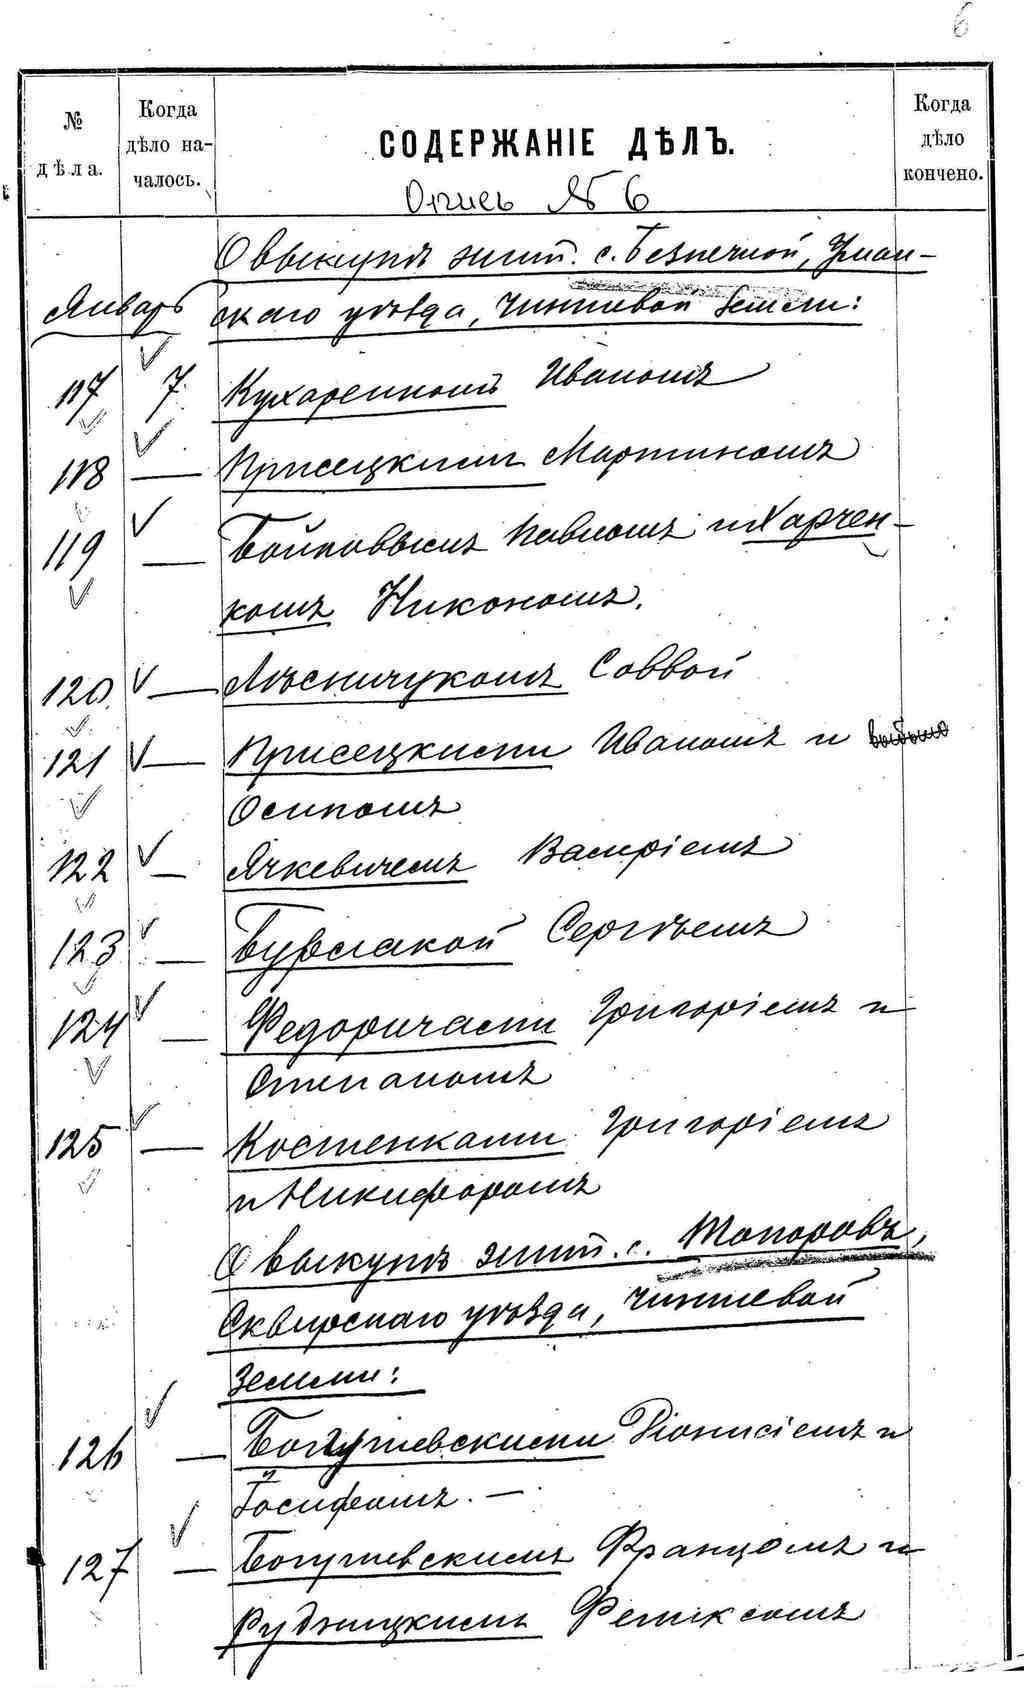 6
№ дѣла.
Когда дѣло началось.
СОДЕРЖАНІЕ ДѢЛЪ.
Когда дѣло кончено.
Опись № 6
О выкупѣ жит. с. Безпечной, Уман-
Январь скаго уѣзда, чиншевой земли:
117 7. Кухаренкомъ Иваномъ
118 — Присецкимъ Мартиномъ
119 — Бойковымъ Павломъ и Харчен-
комъ Никономъ.
120. — Лѣсничукомъ Саввой
121 — Присецкими Иваномъ и
Осипомъ
122 — Ячкевичемъ Валеріемъ
123 — Бурлакой Сергѣемъ
124 — Федоричами Григоріемъ и
Степаномъ
125 — Костенками Григоріемъ
и Никифоромъ
О выкупѣ жит. с. Топоровъ,
Сквирскаго уѣзда, чиншевой
земли:
126 — Богушевскими Діонисіемъ и
Іосифомъ. —
127 — Богушевскимъ Францомъ и
Рудницкимъ Феликсомъ